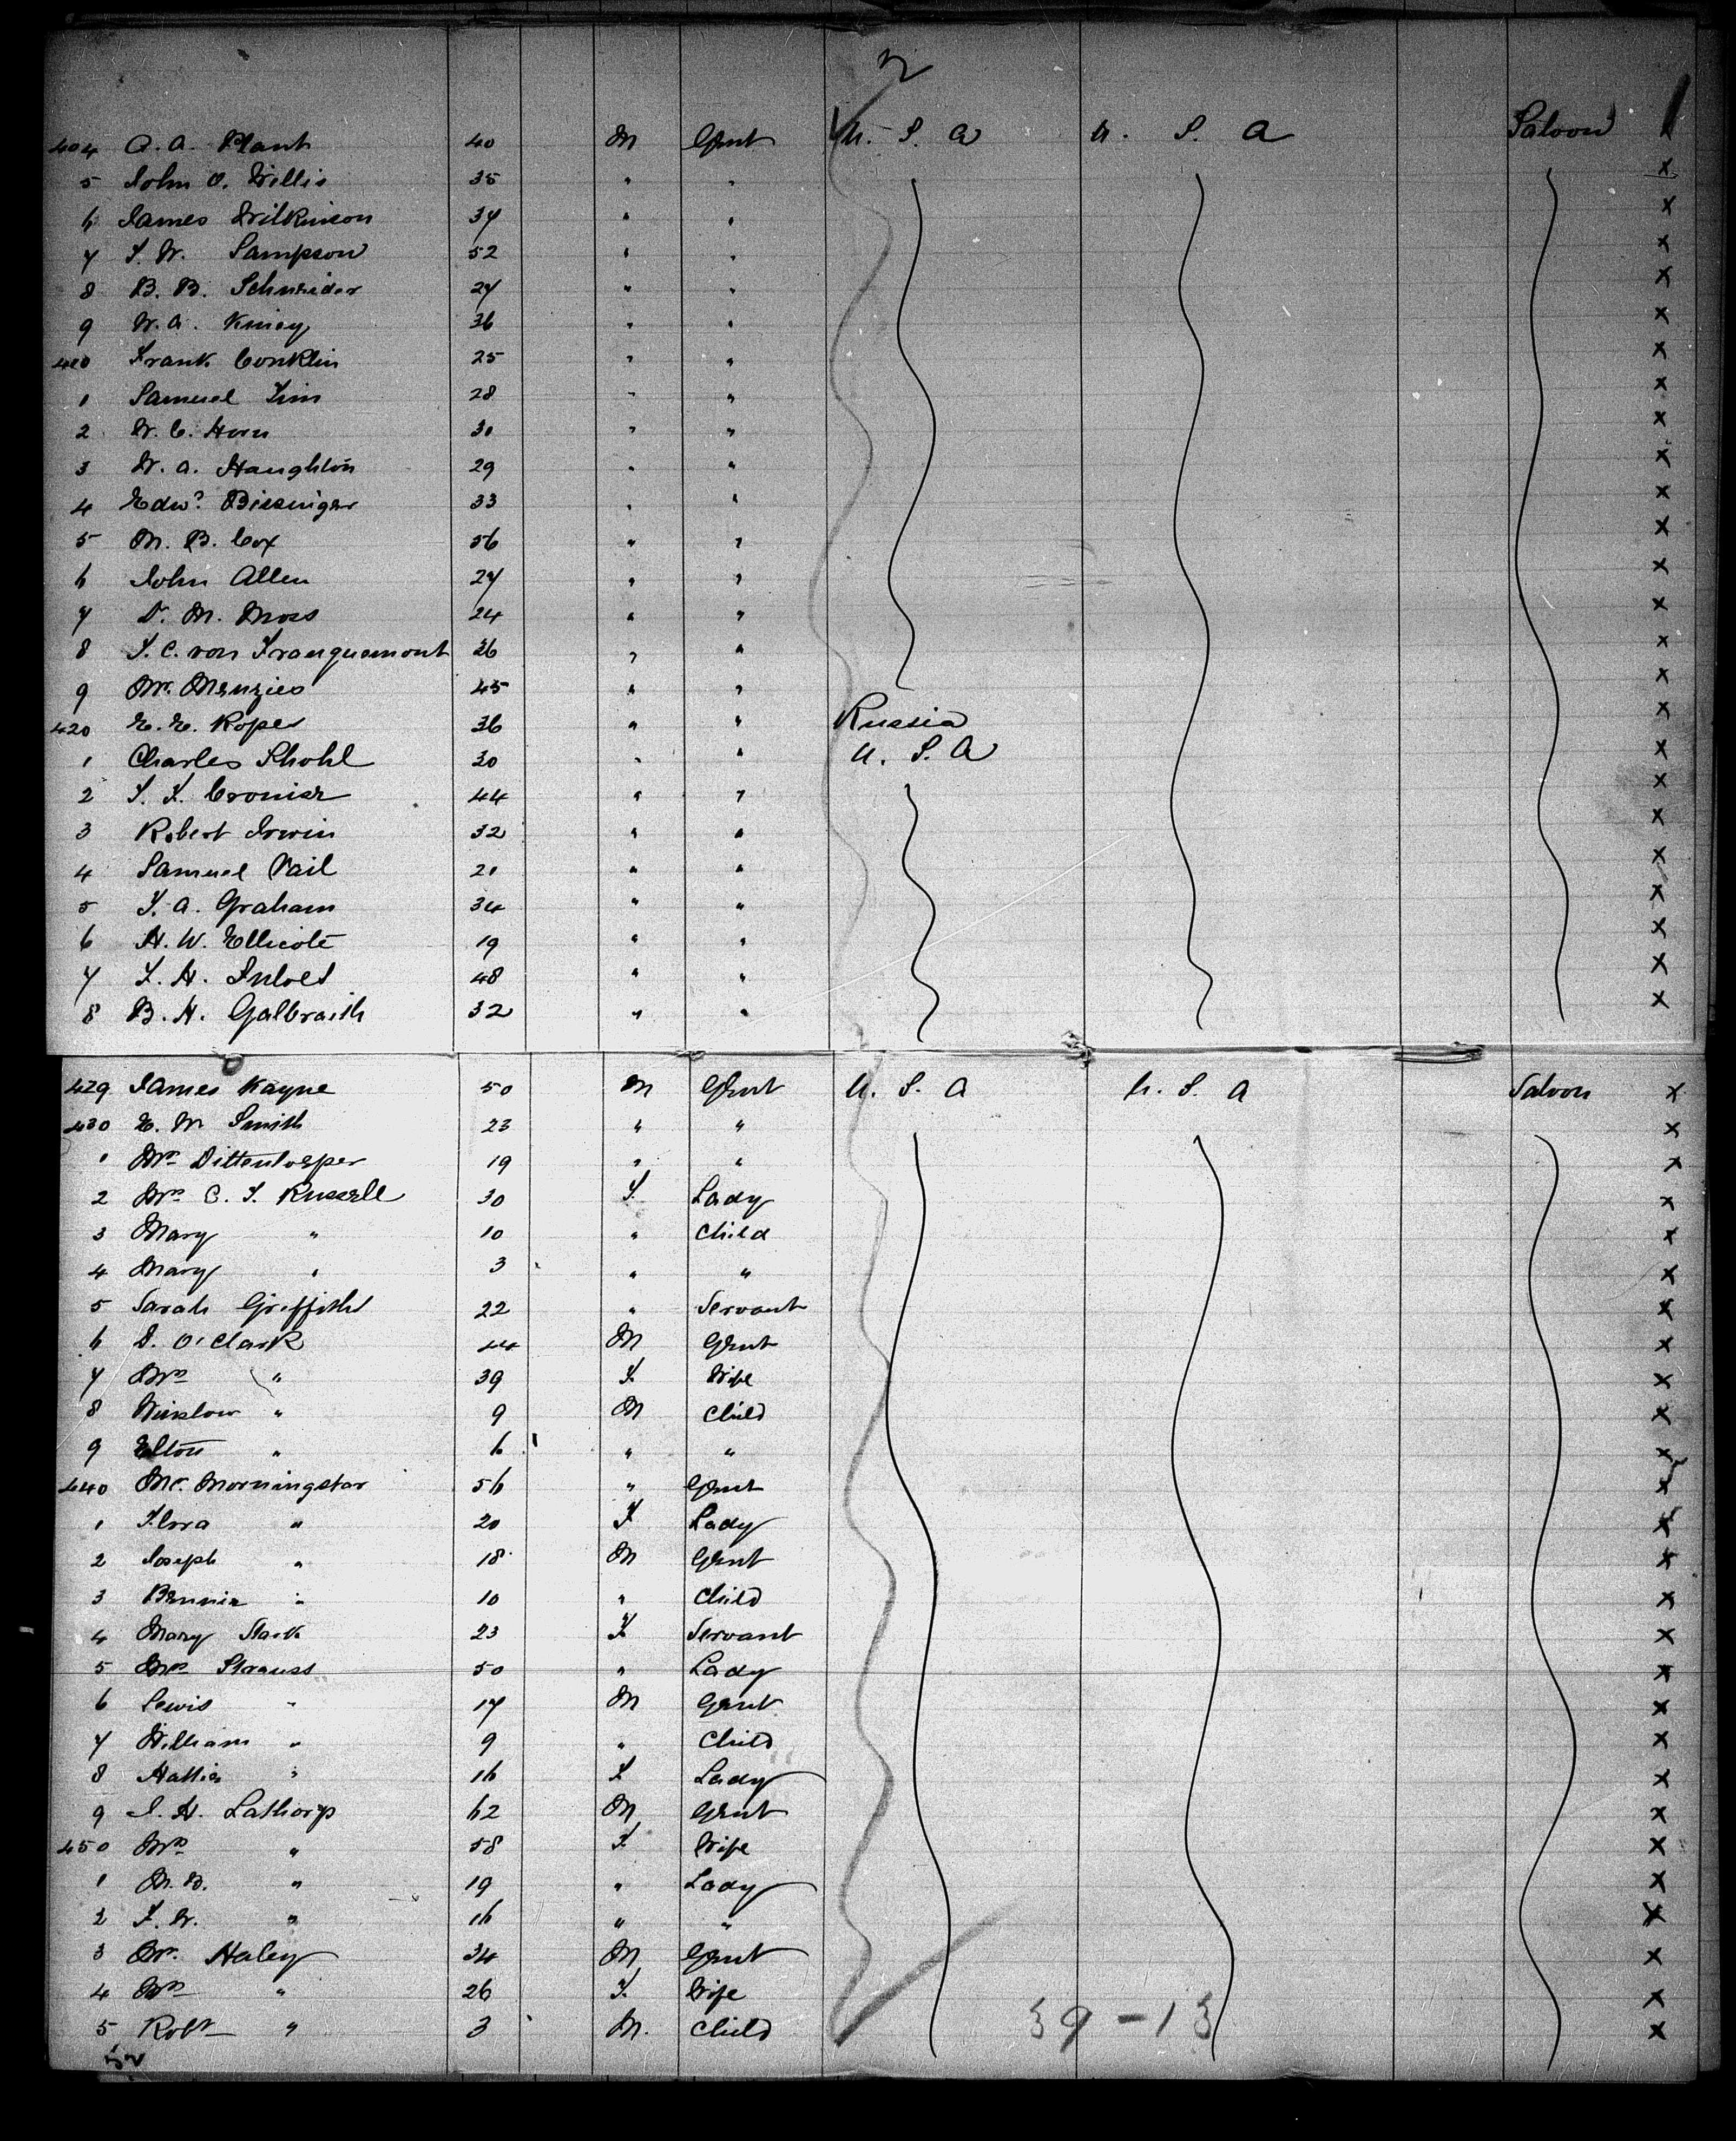 404 A. A. Plant 40 M Gent U. S. A U. S. A Saloon x
5 John O. Willis 35 " " x
6 James Wilkinson 34 " " x
7 S. W. Sampson 52 " " x
8 B. B. Schneider 27 " " x
9 W. A. Kmiey 36 " " x
410 Frank Conklin 25 " " x
1 Samuel 28 " " x
2 W. C. Horn 30 " " x
3 W. A. Haughton 29 " " x
4 Edwd Bissinger 33 " " x
5 M. B. Cox 56 " " x
6 John Allen 27 " " x
7 D. M. Moss 24 " " x
8 F. C. von Franquemont 26 " " x
9 Mr. Menzies 45 " " x
420 E. E. Ropes 36 " " Russia x
1 Charles Shohl 30 " " U. S. A x
2 Cronier 44 " " x
3 Robert Irwin 32 " " x
4 Samuel Vail 21 " " x
5 A. Graham 34 " " x
6 H. W. Ellicote 19 " " x
7 H. Inloes 48 " " x
8 B. H. Galbraith 32 " " x
429 James Kayne 50 M Gent U. S. A U. S. A Saloon x
430 E. W Smith 23 " " x
1 Mrs 19 " " x
2 Mrs C. S. Russell 30 F. Lady x
3 Mary " 10 " Child x
4 Mary " 3 " " x
5 Sarah Griffiths 22 " Servant x
6 D. O'Clark 44 M Gent x
7 Mrs " 39 F. Wife x
8 Winslow " 9 M Child x
9 Elton " 6 " " x
440 Mr. Morningstar 56 " Gent x
1 Flora " 20 F Lady x
2 Joseph " 18 M Gent x
3 Bennie " 10 " Child x
4 Mary Slack 23 F. Servant x
5 Mrs Strauss 50 " Lady x
6 Lewis " 17 M Gent x
7 William " 9 " Child x
8 Hattie " 16 F Lady x
9 J. H. Lathorp 62 M Gent x
450 Mrs " 58 F Wife x
1 M. B. " 19 " Lady x
2 F. W. " 16 " " x
3 Mr. Haley 34 M Gent x
4 Mrs " 26 F. Wife x
5 Robt " 3 M. Child x
39 - 13
52